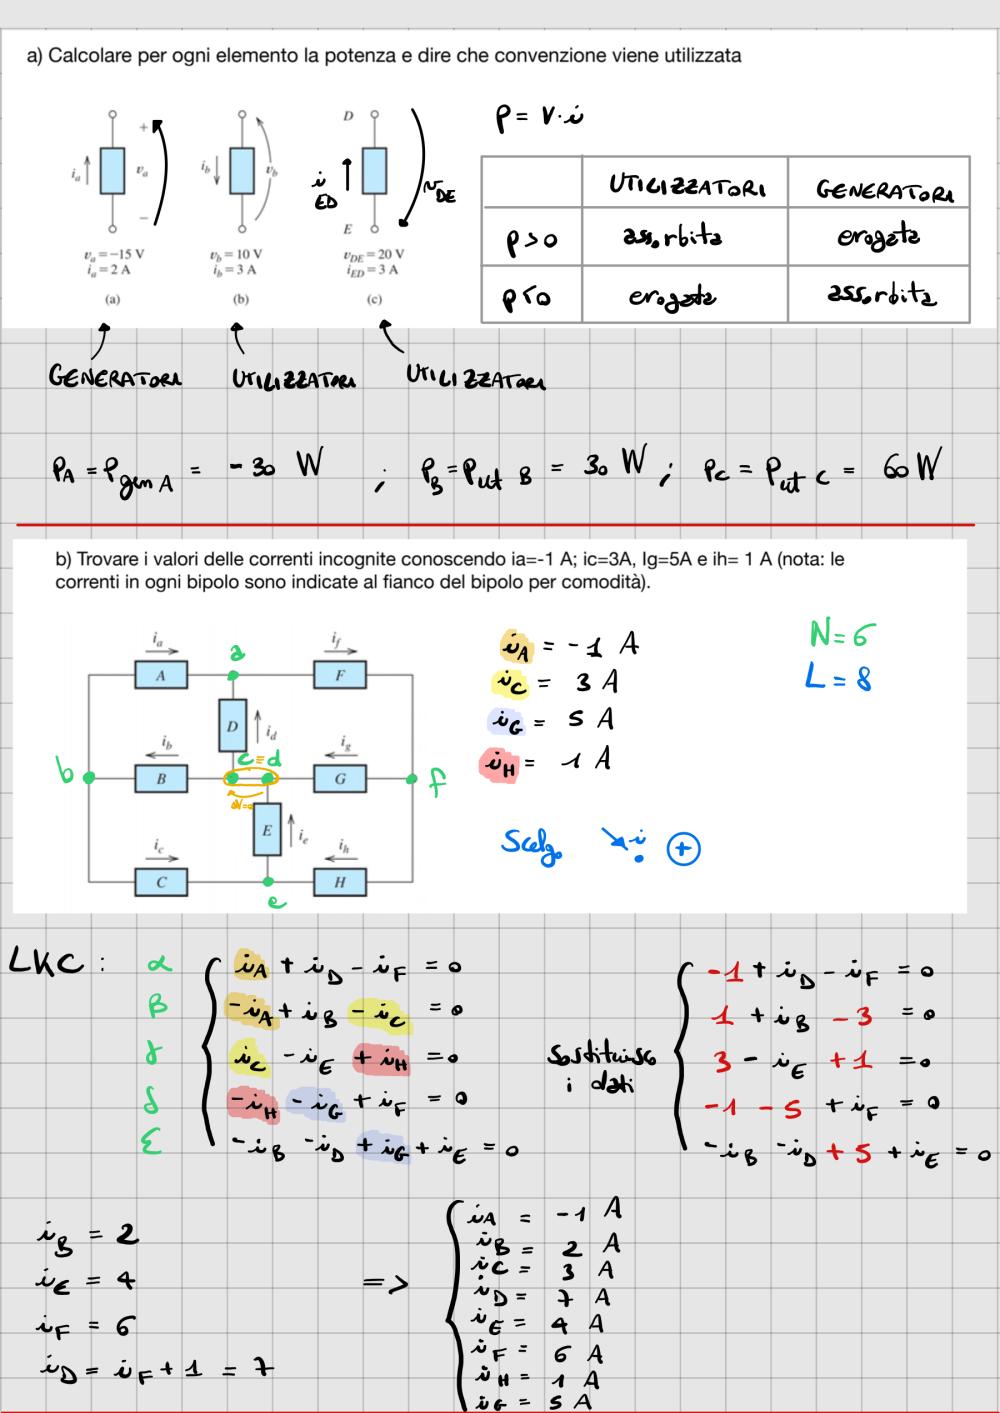 a) Calcolare per ogni elemento la potenza e dire che convenzione viene utilizzata
p = v·i
ia + va −
ib vb
D iED vDE E
va = −15 V
ia = 2 A
(a)
vb = 10 V
ib = 3 A
(b)
vDE = 20 V
iED = 3 A
(c)
UTILIZZATORI GENERATORI
p>0 assorbita erogata
p<0 erogata assorbita
GENERATORI UTILIZZATORI UTILIZZATORI
PA = Pgen A = -30 W ; PB = Put B = 30 W ; PC = Put C = 60 W
b) Trovare i valori delle correnti incognite conoscendo ia=-1 A; ic=3A, Ig=5A e ih= 1 A (nota: le
correnti in ogni bipolo sono indicate al fianco del bipolo per comodità).
ia a if
A F
D id
ib c≡d ig
b B G f
ΔV=0
E ie
ic ih
C H
e
iA = -1 A
iC = 3 A
iG = 5 A
iH = 1 A
N=6
L=8
Scelgo i +
LKC:
α iA + iD - iF = 0
β -iA + iB - iC = 0
γ iC - iE + iH = 0
δ -iH - iG + iF = 0
ε -iB - iD + iG + iE = 0
Sostituisco
i dati
-1 + iD - iF = 0
1 + iB - 3 = 0
3 - iE + 1 = 0
-1 - 5 + iF = 0
-iB - iD + 5 + iE = 0
iB = 2
iE = 4
iF = 6
iD = iF + 1 = 7
=>
iA = -1 A
iB = 2 A
iC = 3 A
iD = 7 A
iE = 4 A
iF = 6 A
iH = 1 A
iG = 5 A